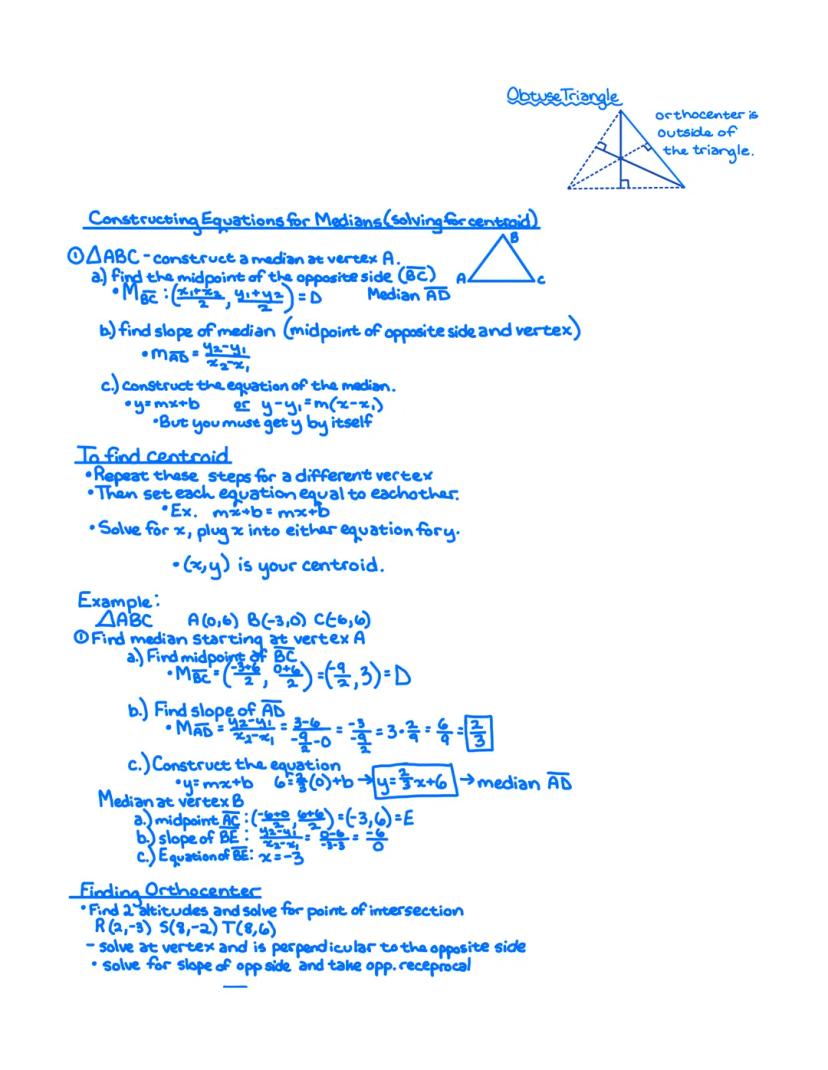 Obtuse Triangle
orthocenter is
outside of
the triangle.
Constructing Equations for Medians (solving for centroid)
① △ABC - construct a median at vertex A.
a) find the midpoint of the opposite side (BC)
• M BC : (x₁+x₂/2, y₁+y₂/2) = D Median AD
A B C
b.) find slope of median (midpoint of opposite side and vertex)
• m AD = y₂-y₁/x₂-x₁
c.) construct the equation of the median.
• y=mx+b or y-y₁=m(x-x₁)
• But you must get y by itself
To find centroid
• Repeat these steps for a different vertex
• Then set each equation equal to eachother.
• Ex. mx+b = mx+b
• Solve for x, plug x into either equation for y.
• (x,y) is your centroid.
Example:
△ABC A(0,6) B(-3,0) C(-6,6)
① Find median starting at vertex A
a.) Find midpoint of BC
• M BC = (-3+6/2, 0+6/2) = (-9/2, 3) = D
b.) Find slope of AD
• M AD = y₂-y₁/x₂-x₁ = 3-6/-9/2-0 = -3/-9/2 = 3·2/9 = 6/9 = 2/3
c.) Construct the equation
• y=mx+b 6=2/3(0)+b → y=2/3x+6 → median AD
Median at vertex B
a.) midpoint AC : (-6+0/2, 6+6/2) = (-3,6) = E
b.) slope of BE : y₂-y₁/x₂-x₁ = 0-6/-3-3 = -6/0
c.) Equation of BE: x=-3
Finding Orthocenter
• Find 2 altitudes and solve for point of intersection
R(2,-3) S(8,-2) T(8,6)
- solve at vertex and is perpendicular to the opposite side
• solve for slope of opp side and take opp. receprocal